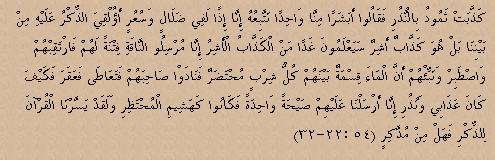 كَذَّبَتْ ثَمُودُ بِالنُّذُرِ فَقَالُوا أَبَشَرًا مِنَّا وَاحِدًا نَتَّبِعُهُ إِنَّا إِذًا لَفِي ضَلَالٍ وَسُعُرٍ أَؤُلْقِيَ الذِّكْرُ عَلَيْهِ مِنْ
بَيْنِنَا بَلْ هُوَ كَذَّابٌ أَشِرٌ سَيَعْلَمُونَ غَدًا مَنْ الْكَذَّابُ الْأَشِرُ إِنَّا مُرْسِلُو النَّاقَةِ فِتْنَةً لَهُمْ فَارْتَقِبْهُمْ
وَاصْطَبِرْ وَنَبِّئْهُمْ أَنَّ الْمَاءَ قِسْمَةٌ بَيْنَهُمْ كُلُّ شِرْبٍ مُحْتَضَرٌ فَنَادَوْا صَاحِبَهُمْ فَتَعَاطَى فَعَقَرَ فَكَيْفَ
كَانَ عَذَابِي وَنُذُرِ إِنَّا أَرْسَلْنَا عَلَيْهِمْ صَيْحَةً وَاحِدَةً فَكَانُوا كَهَشِيمِ الْمُحْتَظِرِ وَلَقَدْ يَسَّرْنَا الْقُرْآنَ
لِلذِّكْرِ فَهَلْ مِنْ مُدَّكِرٍ (٥٤ :٢٢-٣٢)